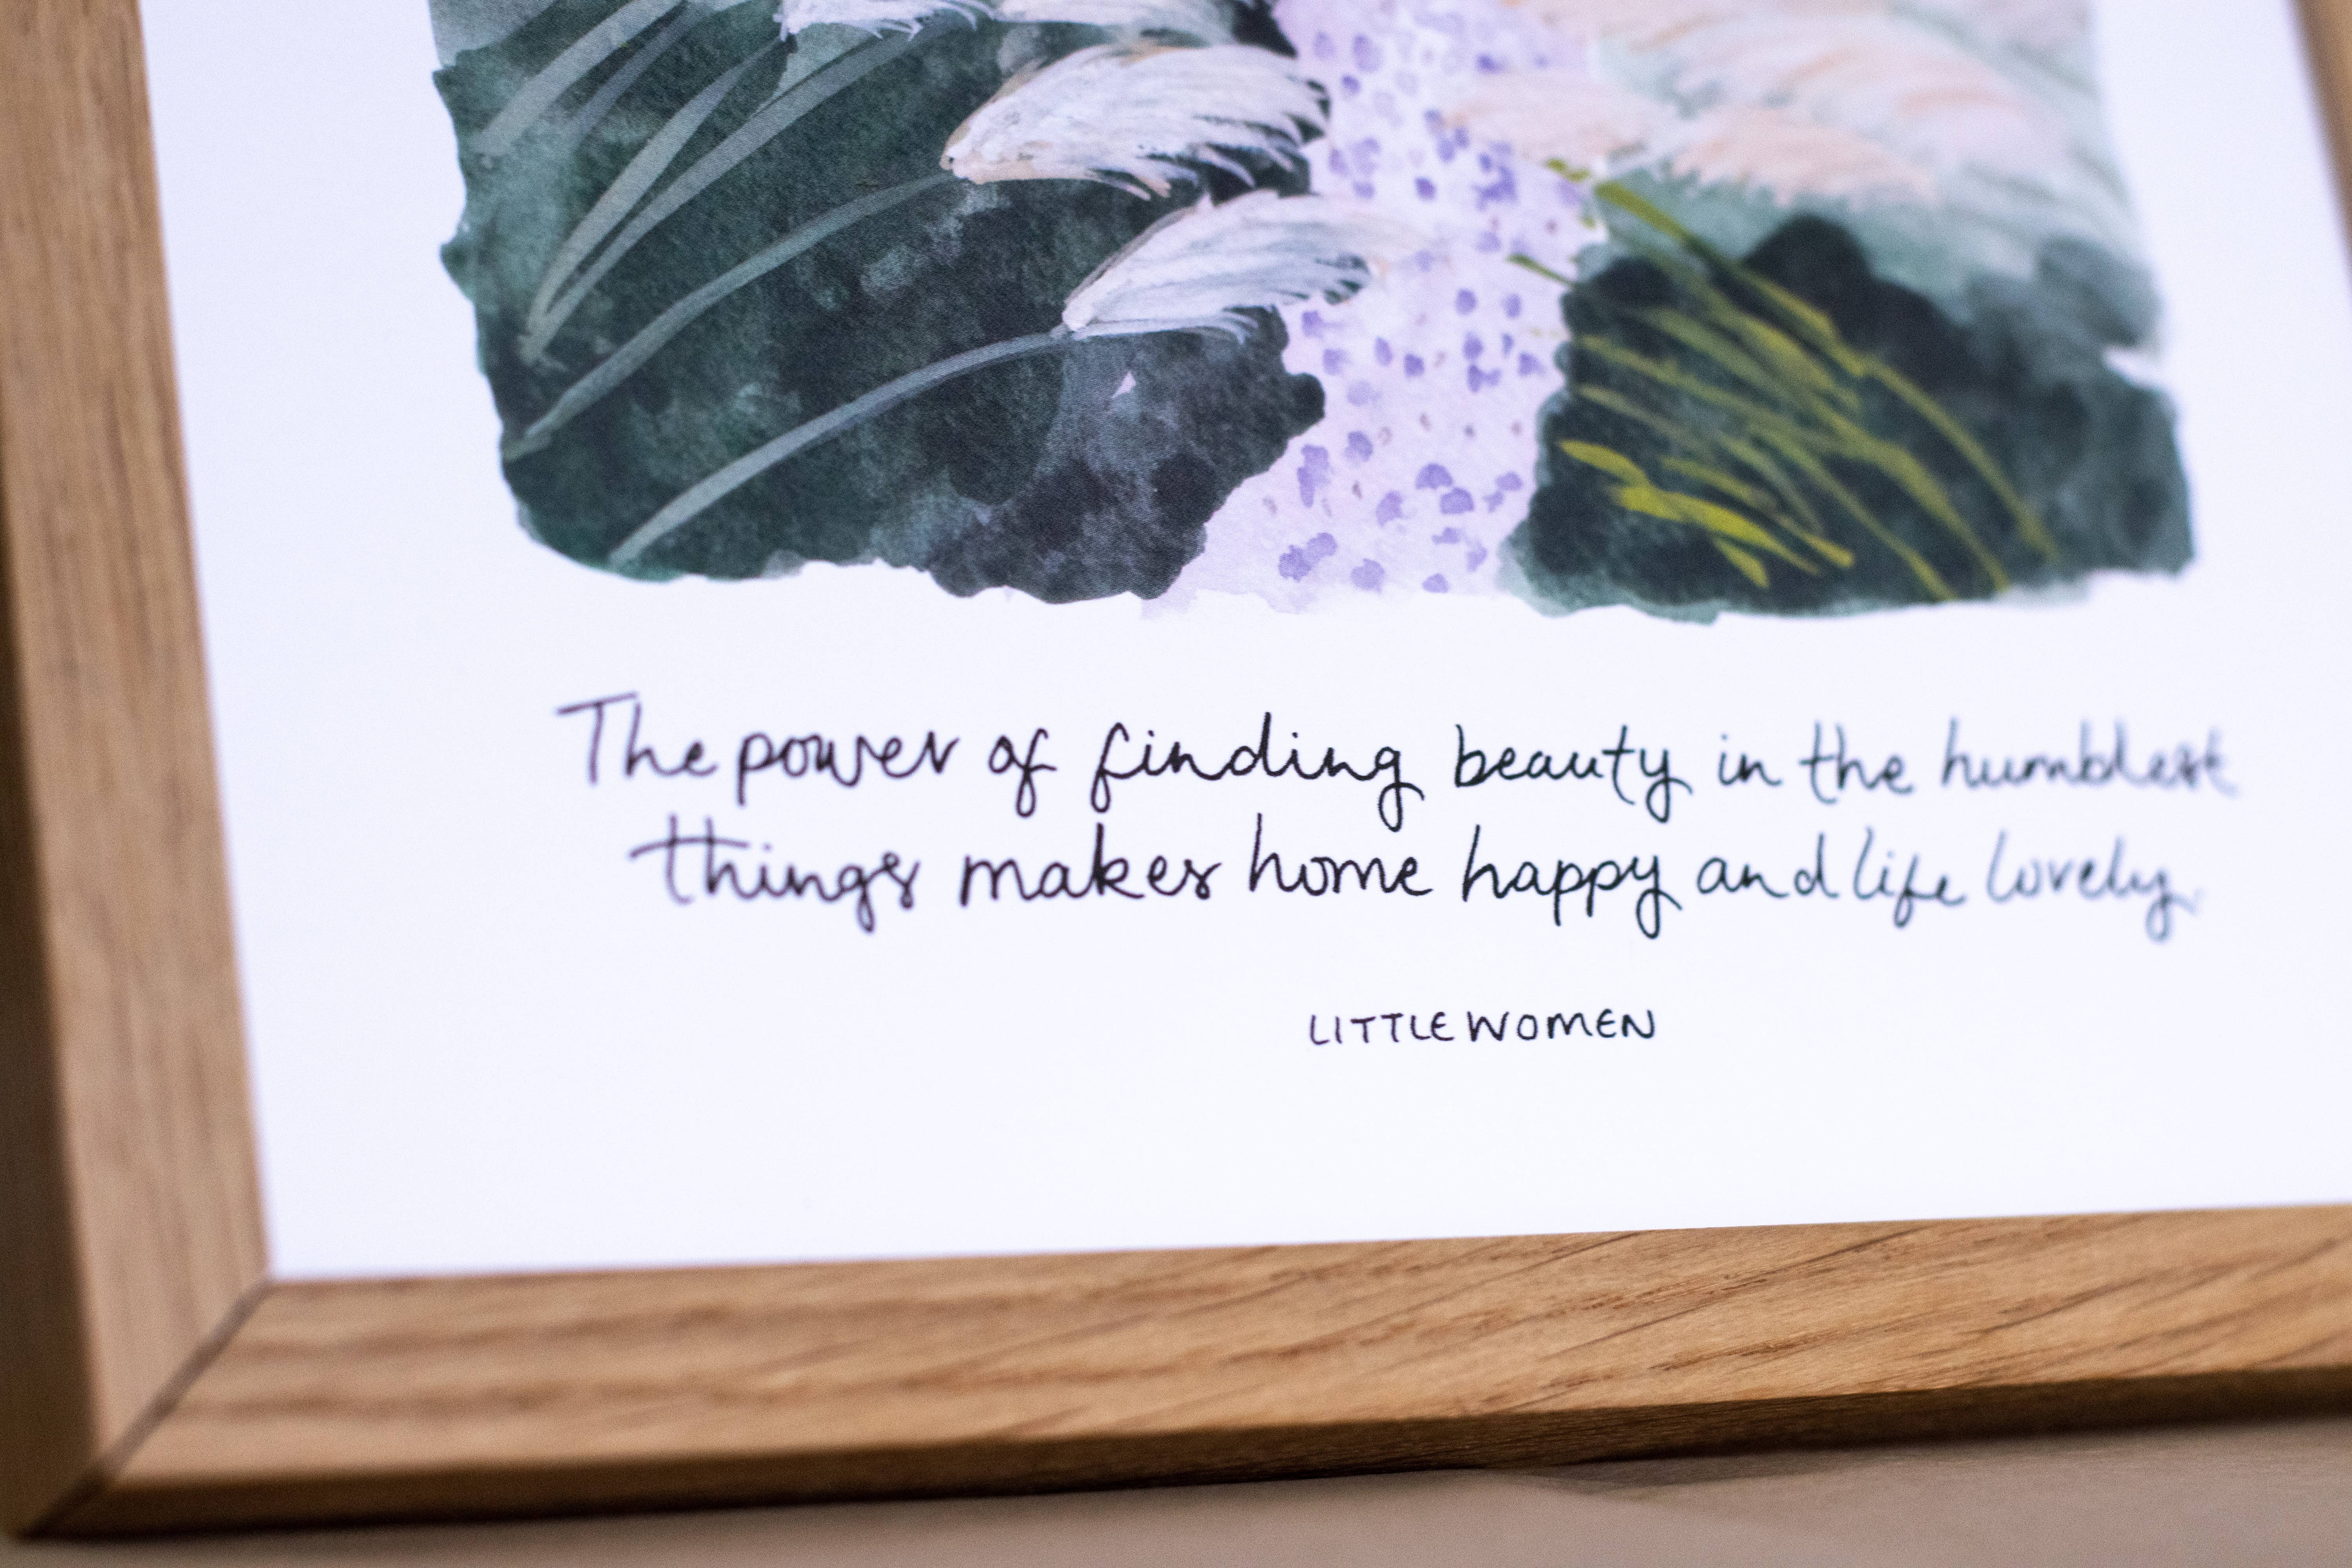 The power of finding beauty in the humblest
things makes home happy and life lovely.
LITTLE WOMEN